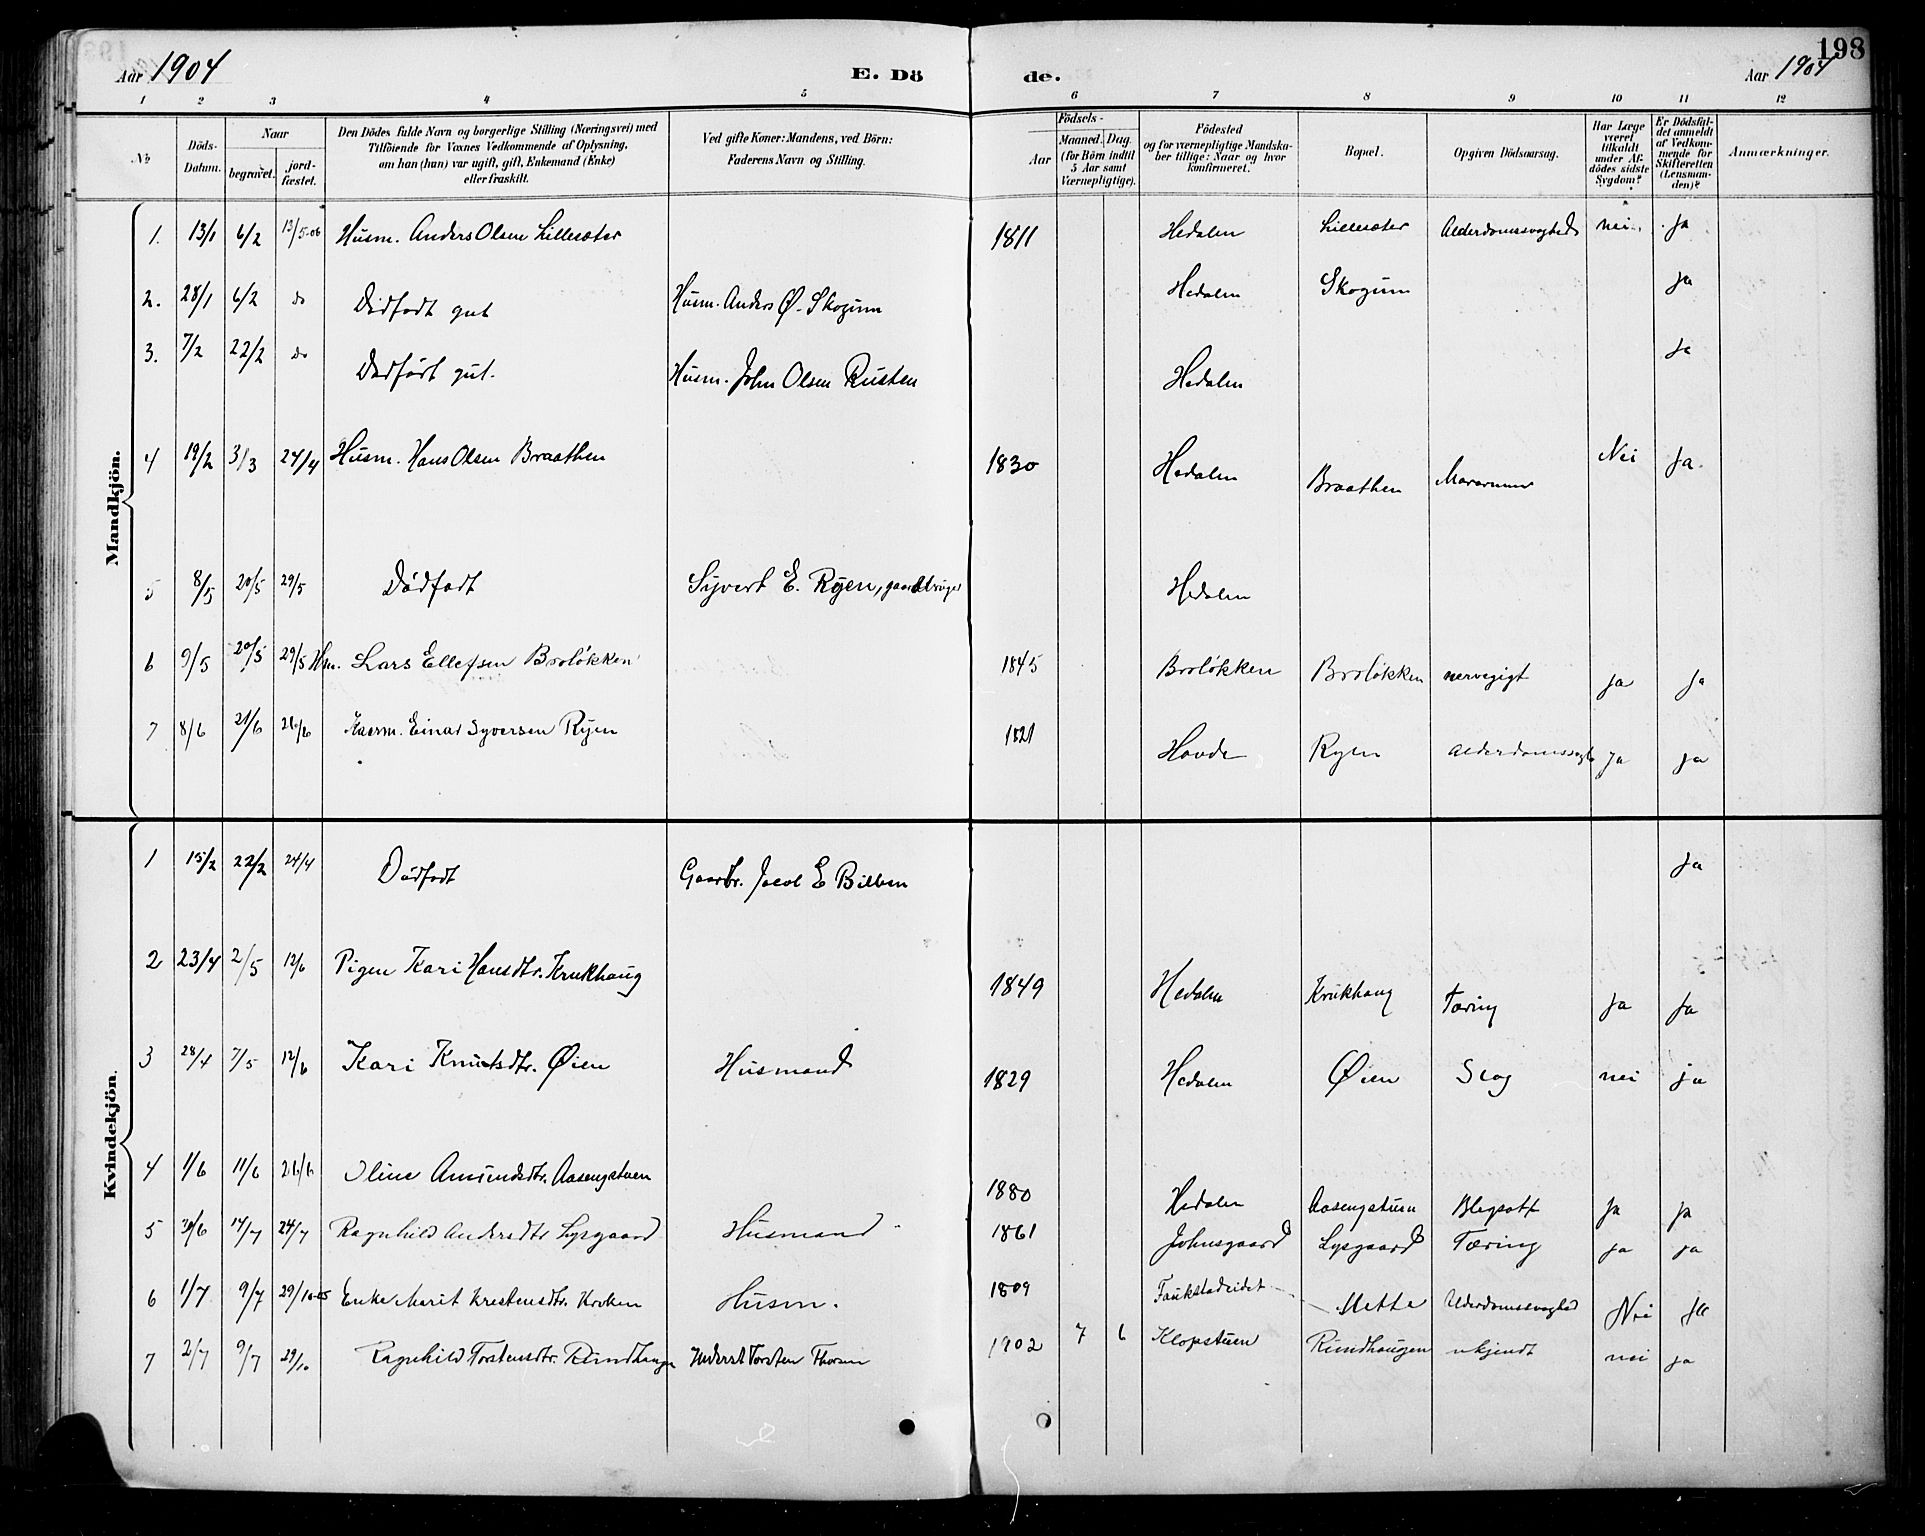 198
Aar 1904 E. Dö de. Aar 1904
1 2 3 4 5 6 7 8 9 10 11 12
No Döds-Datum. Naar begravet. jord-fæstet. Den Dödes fulde Navn og borgerlige Stilling (Næringsvei) med Tilföiende for Voxnes Vedkommende af Oplysning, om han (hun) var ugift, gift, Enkemand (Enke) eller fraskilt. Ved gifte Koner: Mandens, ved Börn: Faderens Navn og Stilling. Födsels- Aar Maaned. Dag. (for Börn indtil 5 Aar samt Værnepligtige). Födested og for værnepligtige Mandskaber tillige: Naar og hvor konfirmeret. Bopæl. Opgiven Dödsaarsag. Har Læge været tilkaldt under Afdödes sidste Sygdom? Er Dödsfaldet anmeldt af Vedkommende for Skifteretten (Lensmanden)? Anmærkninger.
Mandkjön.
1. 13/1 6/2 13/5-06 Husm. Anders Olsen Lillesæter 1811 Hedalen Lillesæter Alderdomssvaghed nei. Ja
2. 28/1 6/2 do Dødfødt gut Husm. Anders Ø. Skogum Hedalen Skogum Ja
3. 7/2 22/2 do Dødfødt gut. Husm. John Olsen Rusten Hedalen Ja
4 19/2 3/3 24/4 Husm. Hans Olsen Braathen 1830 Hedalen Braathen Nei Ja.
5 8/5 20/5 29/5 Dødfødt Syvert E. Ryen, gaardbruger Hedalen
6 9/5 20/5 29/5 Hm. Lars Ellefsen Broløkken 1845 Broløkken Broløkken nervegigt ja Ja
7 8/6 21/6 26/6 Einar Syversen Ryen 1821 Hovde Ryen Alderdomssvagh ja ja
Kvindekjön.
1 15/2 22/2 24/4 Dødfødt Gaardbr. Jacob E Bilben Ja
2 23/4 2/5 12/6 Pigen Kari Hansdtr. Krukhaug 1849 Hedalen Krukhaug Tæring Ja Ja
3 28/4 7/5 12/6 Kari Knutsdtr. Øien Husmand 1829 Hedalen Øien Slag nei ja
4 1/6 11/6 26/6 Oline Amundsdtr. Aasengstuen 1880 Hedalen Aasengstuen Blegsott Ja Ja
5 30/6 14/7 24/7 Ragnhild Andersdtr Lysgaard Husmand 1861 Johnsgaard Lysgaard Tæring ja ja
6 1/7 9/7 29/10-05 Enke Marit Kristensdtr. Kroken Husm. 1809 Mette Alderdomssvaghed Nei Ja
7 2/7 9/7 29/10 Ragnhild Torstensdtr. Rundhaugen Inderst Torsten Thoren 1902 7 6 Klopstuen Rundhaugen ukjendt nei ja